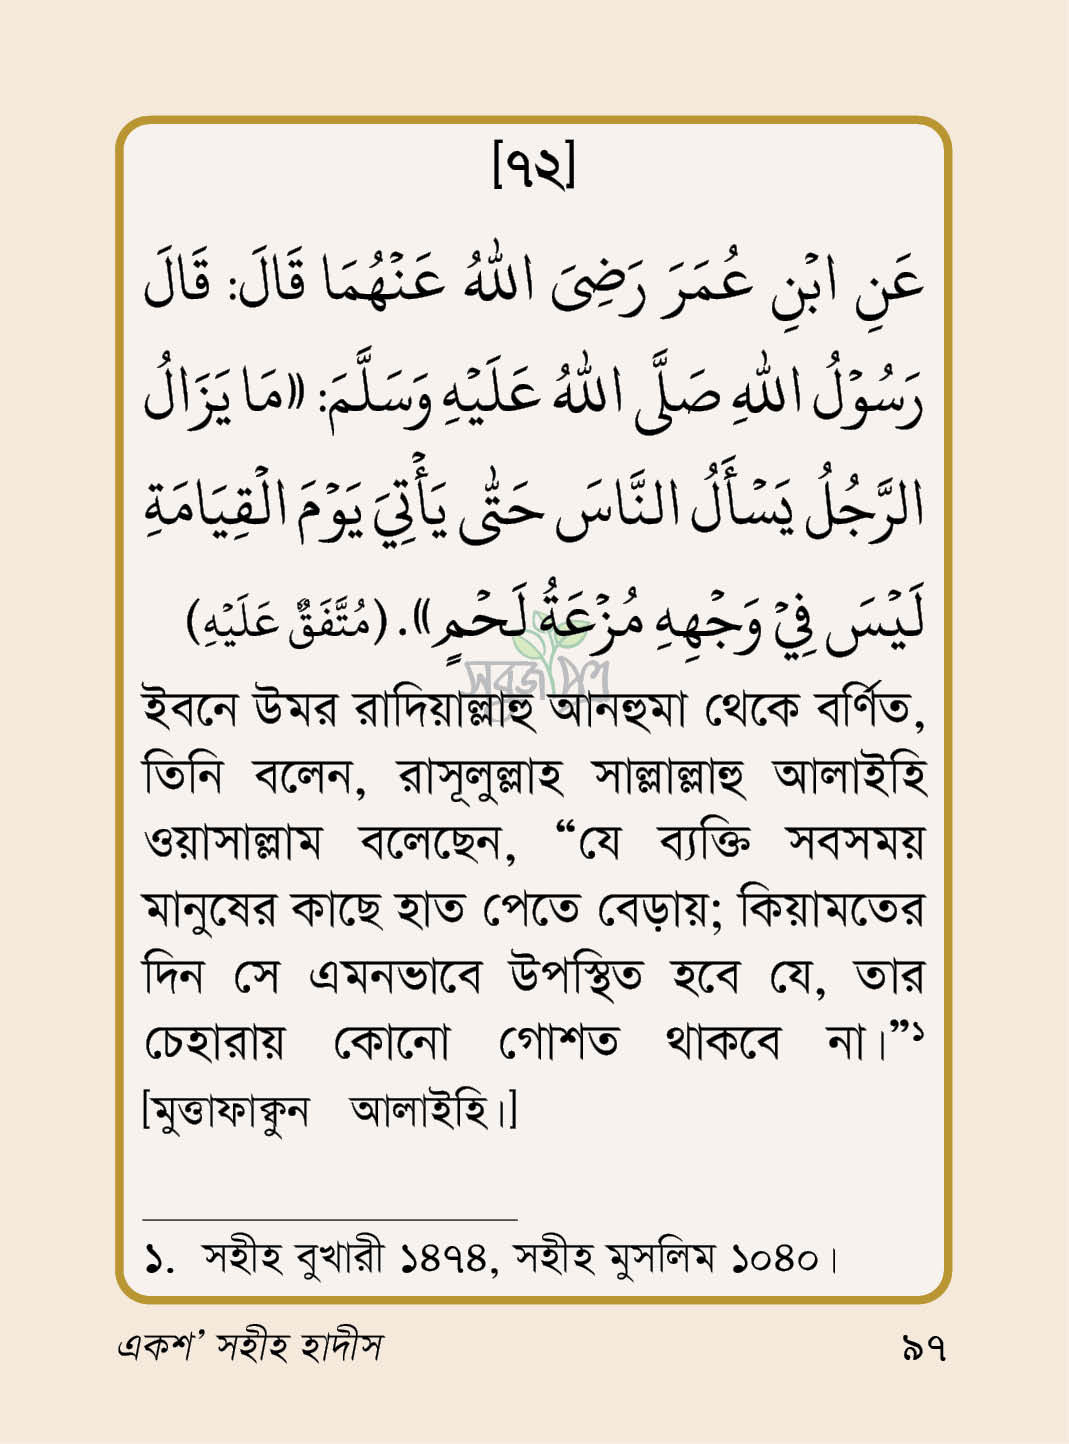 [৭২]
عَنِ ابْنِ عُمَرَ رَضِىَ اللهُ عَنْهُمَا قَالَ: قَالَ
رَسُوْلُ اللهِ صَلَّى اللهُ عَلَيْهِ وَسَلَّمَ: «مَا يَزَالُ
الرَّجُلُ يَسْأَلُ النَّاسَ حَتّٰى يَأْتِيَ يَوْمَ الْقِيَامَةِ
لَيْسَ فِيْ وَجْهِهِ مُزْعَةُ لَحْمٍ». (مُتَّفَقٌ عَلَيْهِ)
সবুজপত্র
ইবনে উমর রাদিয়াল্লাহু আনহুমা থেকে বর্ণিত,
তিনি বলেন, রাসূলুল্লাহ সাল্লাল্লাহু আলাইহি
ওয়াসাল্লাম বলেছেন, “যে ব্যক্তি সবসময়
মানুষের কাছে হাত পেতে বেড়ায়; কিয়ামতের
দিন সে এমনভাবে উপস্থিত হবে যে, তার
চেহারায় কোনো গোশত থাকবে না।”১
[মুত্তাফাক্বুন আলাইহি।]
১. সহীহ বুখারী ১৪৭৪, সহীহ মুসলিম ১০৪০।
একশ’ সহীহ হাদীস ৯৭